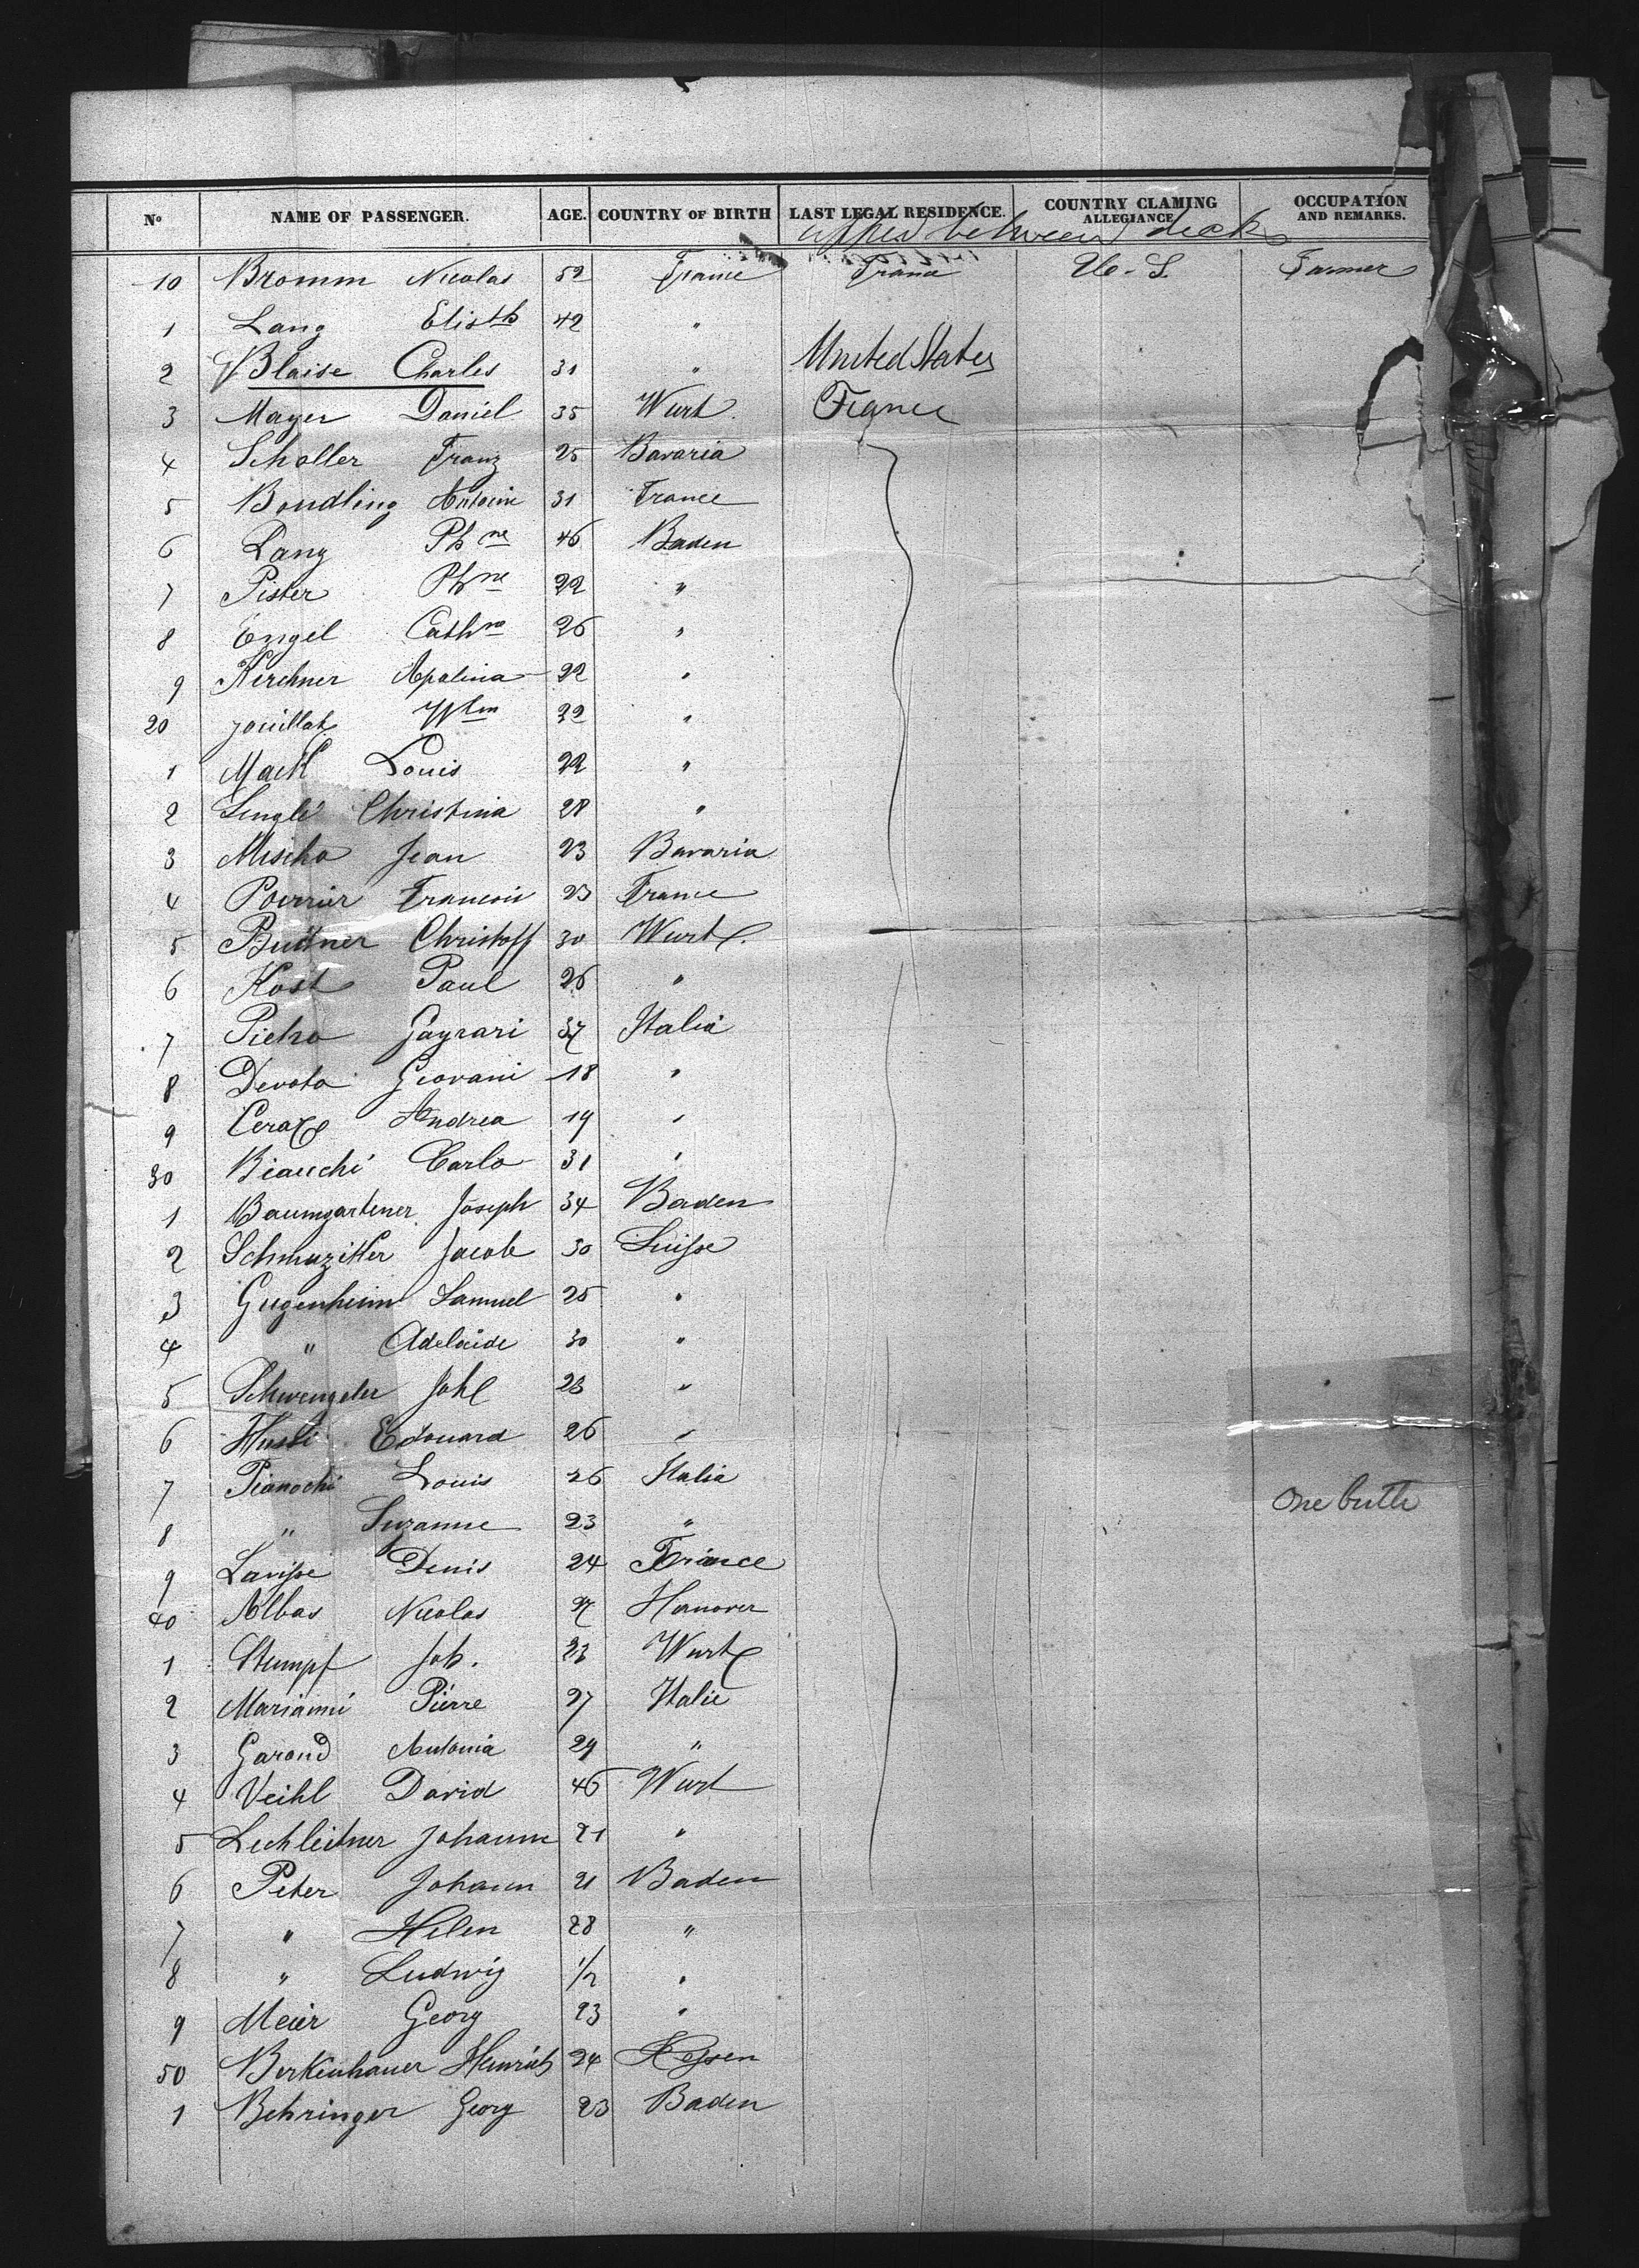 Nº NAME OF PASSENGER. AGE. COUNTRY OF BIRTH LAST LEGAL RESIDENCE. COUNTRY CLAMING ALLEGIANCE OCCUPATION AND REMARKS.
upper between decks
10 Bromm Nicolas 52 France France U. S. Farmer
1 Lang Elisth 42 "
2 Blaise Charles 31 " United States
3 Mayer Daniel 35 Wurt. France
4 Scholler Franz 25 Bavaria
5 Bondling Antoine 31 France
6 Lang Phne 46 Baden
7 Pister Phne 22 "
8 Engel Cathne 26 "
9 Kerchner Apolina 22 "
20 Jouillat Wlm 32 "
1 Mack Louis 22 "
2 Lenglé Christina 28 "
3 Mischo Jean 23 Bavaria
4 Poirrier Francois 23 France
5 Buttner Christoff 30 Wurt.
6 Kost Paul 26 "
7 Pietro 37 Italia
8 Devoto Giovani 18 "
9 Andrea 19 "
30 Bianchi Carlo 31 "
1 Baumgartener Joseph 34 Baden
2 Jacob 30 Suisse
3 Gugenheim Samuel 25 "
4 " Adelaide 30 "
5 Schwengeler Johl 23 "
6 Hussi Edouard 26 "
7 Pianochi Louis 26 Italia
8 " Suzanne 23 " One birth
9 Lavisse Denis 24 France
40 Albas Nicolas 27 Hanover
1 Stumpf Joh. 23 Wurt
2 Marianni Pierre 27 Italie
3 Garond Antonia 24 "
4 Veihl David 46 Wurt
5 Lechleitner Johanne 21 "
6 Peter Johann 21 Baden
7 " Helen 28 "
8 " Ludwig 1/2 "
9 Meier Georg 23 "
50 Berkenhauer Heinrich 24 Hessen
1 Behringer Georg 23 Baden